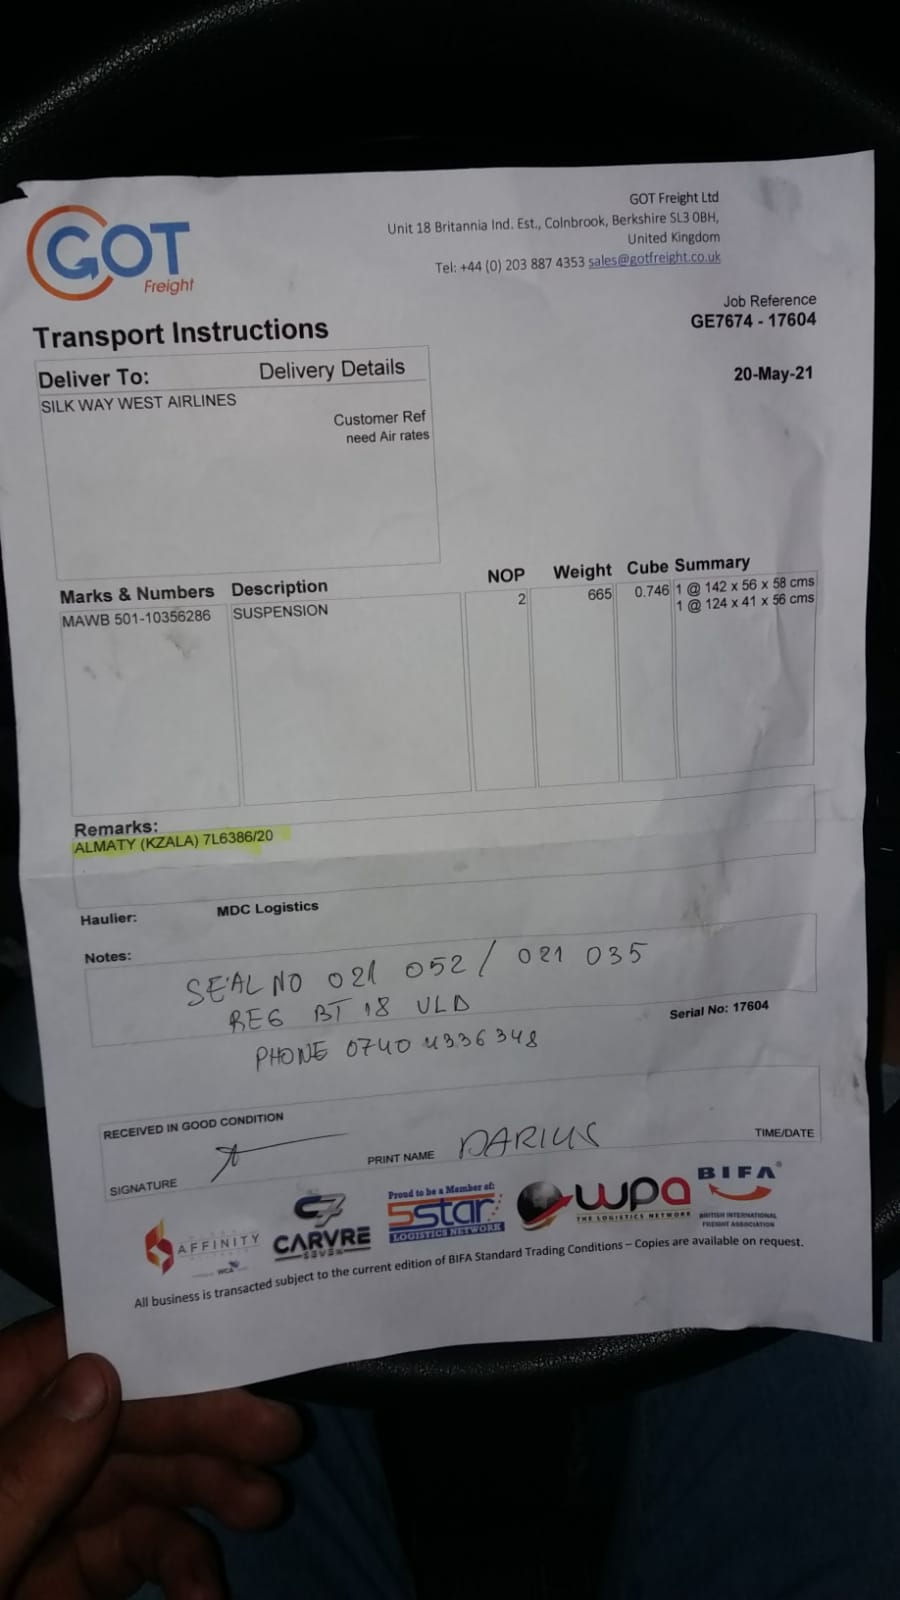 GOT
Freight
GOT Freight Ltd
Unit 18 Britannia Ind. Est., Colnbrook, Berkshire SL3 0BH,
United Kingdom
Tel: +44 (0) 203 887 4353 sales@gotfreight.co.uk
Job Reference
GE7674 - 17604
Transport Instructions
20-May-21
Deliver To: Delivery Details
SILK WAY WEST AIRLINES
Customer Ref
need Air rates
Marks & Numbers Description NOP Weight Cube Summary
MAWB 501-10356286 SUSPENSION 2 665 0.746 1 @ 142 x 56 x 58 cms
1 @ 124 x 41 x 56 cms
Remarks:
ALMATY (KZALA) 7L6386/20
Haulier: MDC Logistics
Notes:
SEAL NO 021 052 / 021 035
REG BT 18 VLD
PHONE 0740 4336348
Serial No: 17604
RECEIVED IN GOOD CONDITION
SIGNATURE
PRINT NAME DARIUS
TIME/DATE
AFFINITY
WCA
C7
CARVRE
SEVEN
Proud to be a Member of:
5star
LOGISTICS NETWORK
wpa
THE LOGISTICS NETWORK
BIFA
BRITISH INTERNATIONAL
FREIGHT ASSOCIATION
All business is transacted subject to the current edition of BIFA Standard Trading Conditions – Copies are available on request.